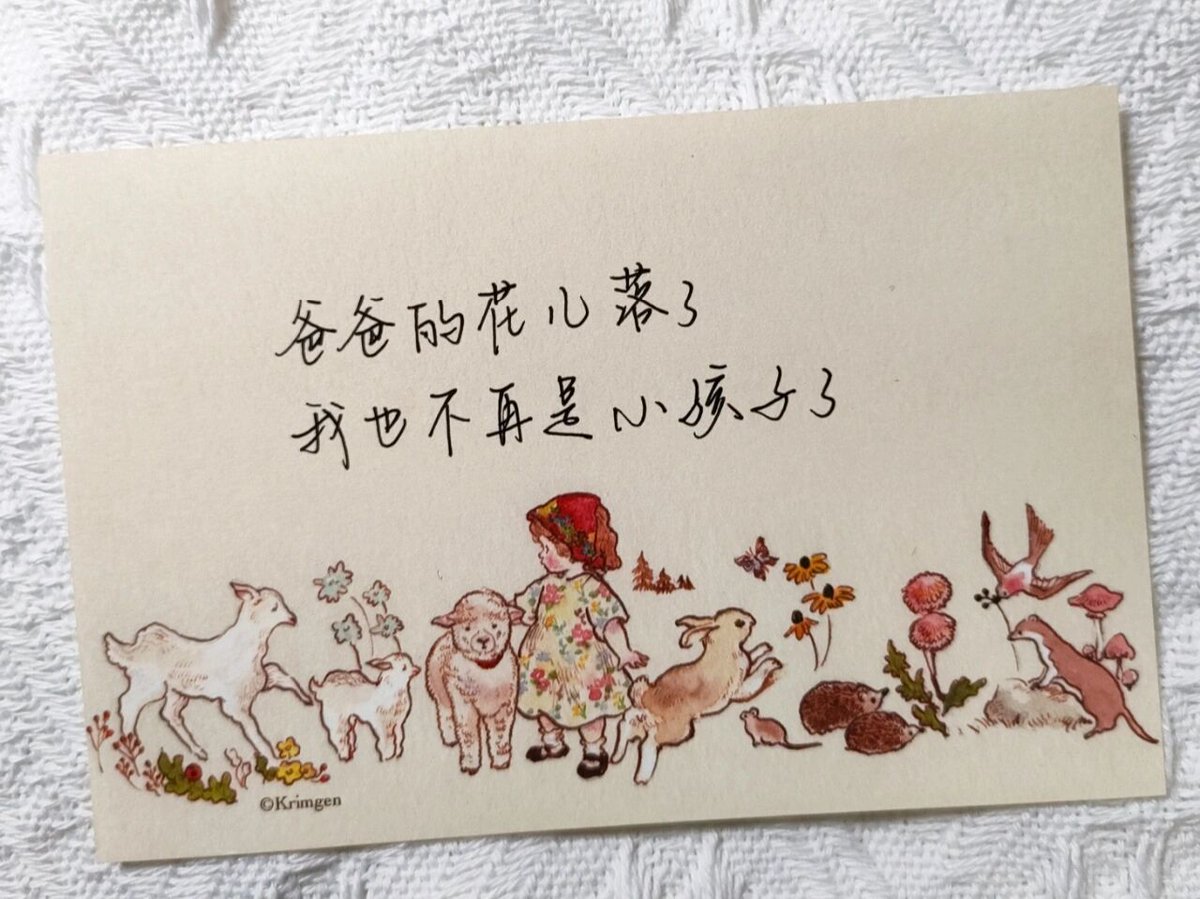 爸爸的花儿落了
我也不再是小孩子了
©Krimgen